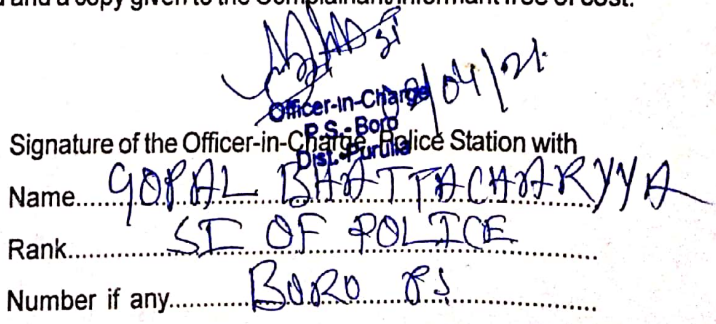 and a copy given to the Complainant/Informant free of cost.
SI
Officer-in-Charge
P.S.-Boro
Dist.-Purulia
02/04/21
Signature of the Officer-in-Charge, Police Station with
Name.....GOPAL BHATTACHARYYA
Rank.....SI OF POLICE
Number if any.....BORO PS